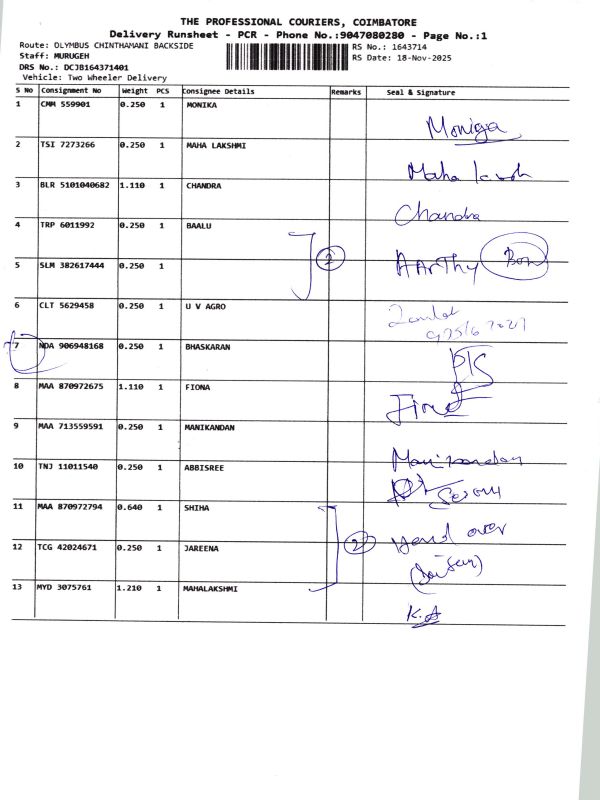 THE PROFESSIONAL COURIERS, COIMBATORE
Delivery Runsheet - PCR - Phone No.:9047080280 - Page No.:1
Route: OLYMBUS CHINTHAMANI BACKSIDE RS No.: 1643714
Staff: MURUGEH RS Date: 18-Nov-2025
DRS No.: DCJB164371401
Vehicle: Two Wheeler Delivery
S No Consignment No Weight PCS Consignee Details Remarks Seal & Signature
1 CMM 559901 0.250 1 MONIKA
Moniga
2 TSI 7273266 0.250 1 MAHA LAKSHMI
Maha
3 BLR 5101040682 1.110 1 CHANDRA
Chandra
4 TRP 6011992 0.250 1 BAALU
2 AARTHY
5 SLM 382617444 0.250 1
6 CLT 5629458 0.250 1 U V AGRO
7 NDA 906948168 0.250 1 BHASKARAN
8 MAA 870972675 1.110 1 FIONA
9 MAA 713559591 0.250 1 MANIKANDAN
10 TNJ 11011540 0.250 1 ABBISREE
11 MAA 870972794 0.640 1 SHIHA
2 Hand over
12 TCG 42024671 0.250 1 JAREENA
13 MYD 3075761 1.210 1 MAHALAKSHMI
K.A